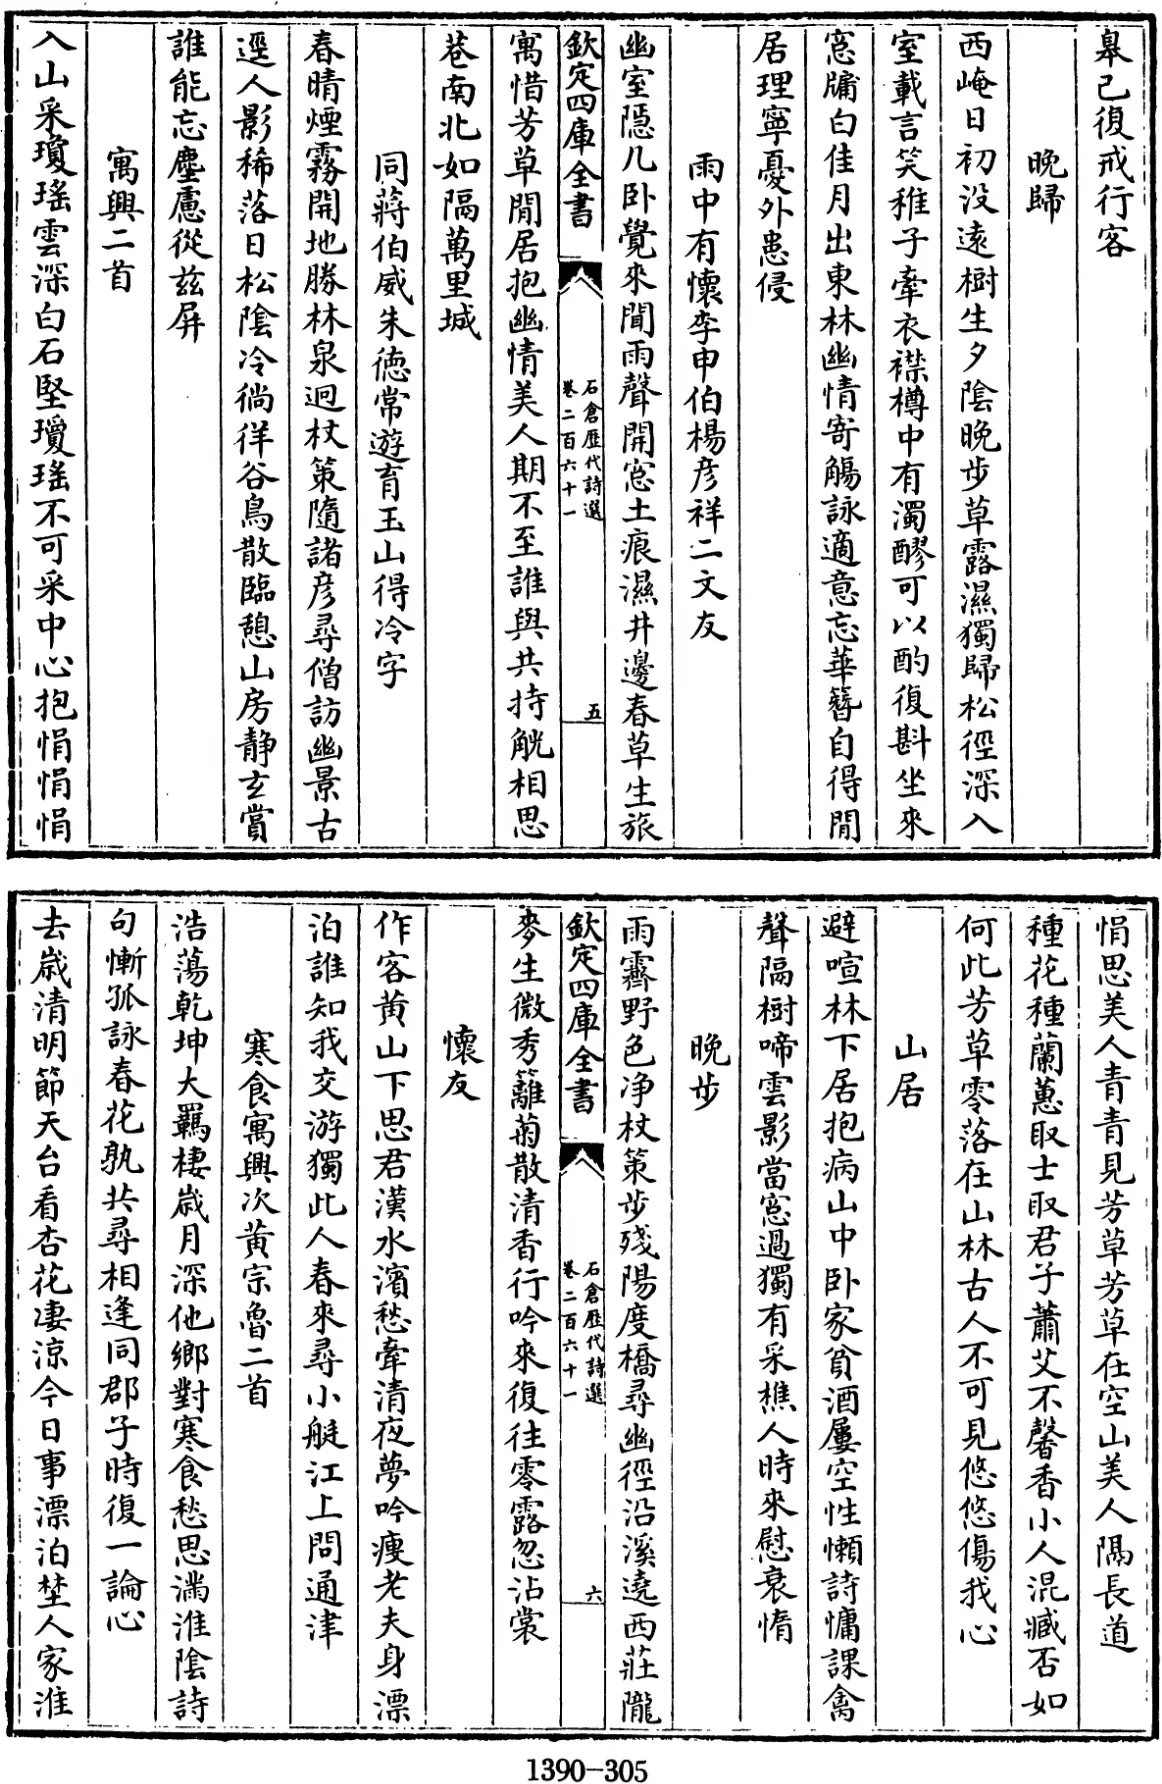 臯己復戒行客
晚歸
西崦日初没遠樹生夕陰晚步草露濕獨歸松徑深入
室載言笑稚子牽衣襟樽中有濁醪可以酌復斟坐來
窓牖白佳月出東林幽情寄觴詠適意忘華簪自得閒
居理寧憂外患侵
雨中有懷李申伯楊彦祥二文友
幽室隠几卧覺來聞雨聲開窓土痕濕井邊春草生旅
欽定四庫全書
石倉歴代詩選
卷二百六十一
五
寓惜芳草閒居抱幽情美人期不至誰與共持觥相思
巷南北如隔萬里城
同蔣伯威朱徳常遊育玉山得冷字
春晴煙霧開地勝林泉迥杖策隨諸彦尋僧訪幽景古
逕人影稀落日松陰冷徜徉谷鳥散臨憩山房静玄賞
誰能忘塵慮從兹屏
寓興二首
入山采瓊瑤雲深白石堅瓊瑤不可采中心抱悁悁悁
悁思美人青青見芳草芳草在空山美人隔長道
種花種蘭蕙取士取君子蕭艾不馨香小人混臧否如
何此芳草零落在山林古人不可見悠悠傷我心
山居
避喧林下居抱病山中卧家貧酒屢空性懶詩慵課禽
聲隔樹啼雲影當窓過獨有采樵人時來慰衰惰
晚步
雨霽野色净杖策步殘陽度橋尋幽徑沿溪遶西莊隴
欽定四庫全書
石倉歴代詩選
卷二百六十一
六
麥生微秀籬菊散清香行吟來復往零露忽沾裳
懷友
作客黄山下思君漢水濱愁牽清夜夢吟瘦老夫身漂
泊誰知我交游獨此人春來尋小艇江上問通津
寒食寓興次黄宗魯二首
浩蕩乾坤大羈棲歳月深他鄉對寒食愁思滿淮陰詩
句慚孤詠春花孰共尋相逢同郡子時復一論心
去歳清明節天台看杏花凄涼今日事漂泊埜人家淮
1390-305